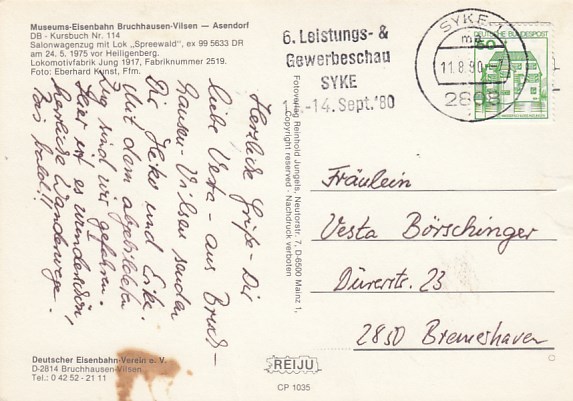 Museums-Eisenbahn Bruchhausen-Vilsen — Asendorf
DB - Kursbuch Nr. 114
Salonwagenzug mit Lok „Spreewald", ex 99 5633 DR
am 24. 5. 1975 vor Heiligenberg.
Lokomotivfabrik Jung 1917, Fabriknummer 2519.
Foto: Eberhard Kunst, Ffm.
Herzliche Grüße - Dir
liebe Vesta - aus Bruch-
hausen-Vilsen senden
Dir Heike und Eike.
Mit dem abgebildeten
Zug sind wir gefahren.
Hier ist es wunderschön,
herrliche Wanderwege.
Bis bald!!
Deutscher Eisenbahn-Verein e. V.
D-2814 Bruchhausen-Vilsen
Tel.: 0 42 52 - 21 11
Fotoverlag Reinhold Jungels, Neutorstr. 7, D-6500 Mainz 1,
Copyright reserved - Nachdruck verboten
REIJU
CP 1035
6. Leistungs- &
Gewerbeschau
SYKE
-14. Sept.'80
SYKE 1
11.8.80
2808
50
DEUTSCHE BUNDESPOST
Fräulein
Vesta Börschinger
Dürerstr. 23
2850 Bremerhaven